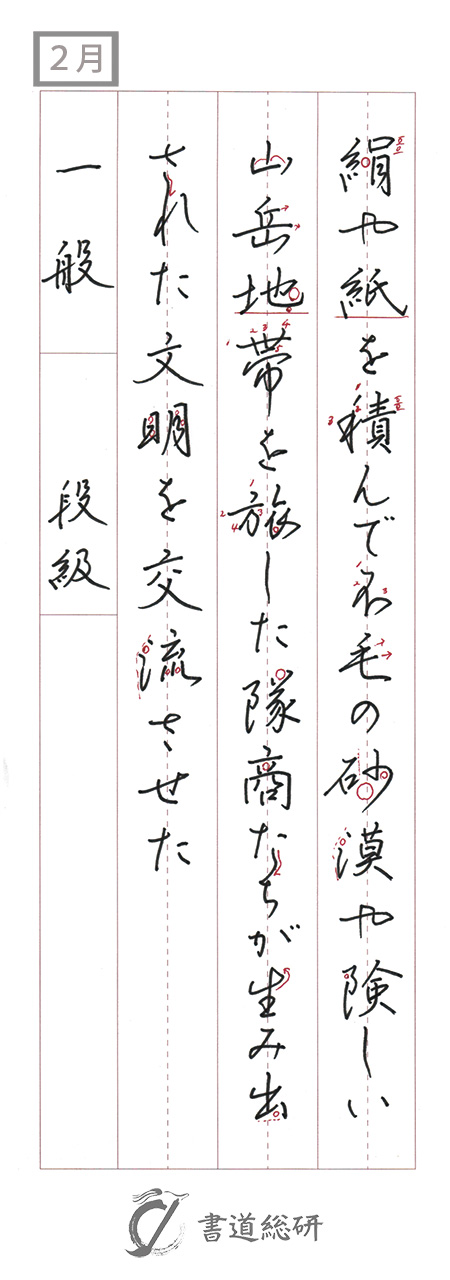 2月
絹や紙を積んで不毛の砂漠や険しい
山岳地帯を旅した隊商たちが生み出
された文明を交流させた
一般
段級
書道総研